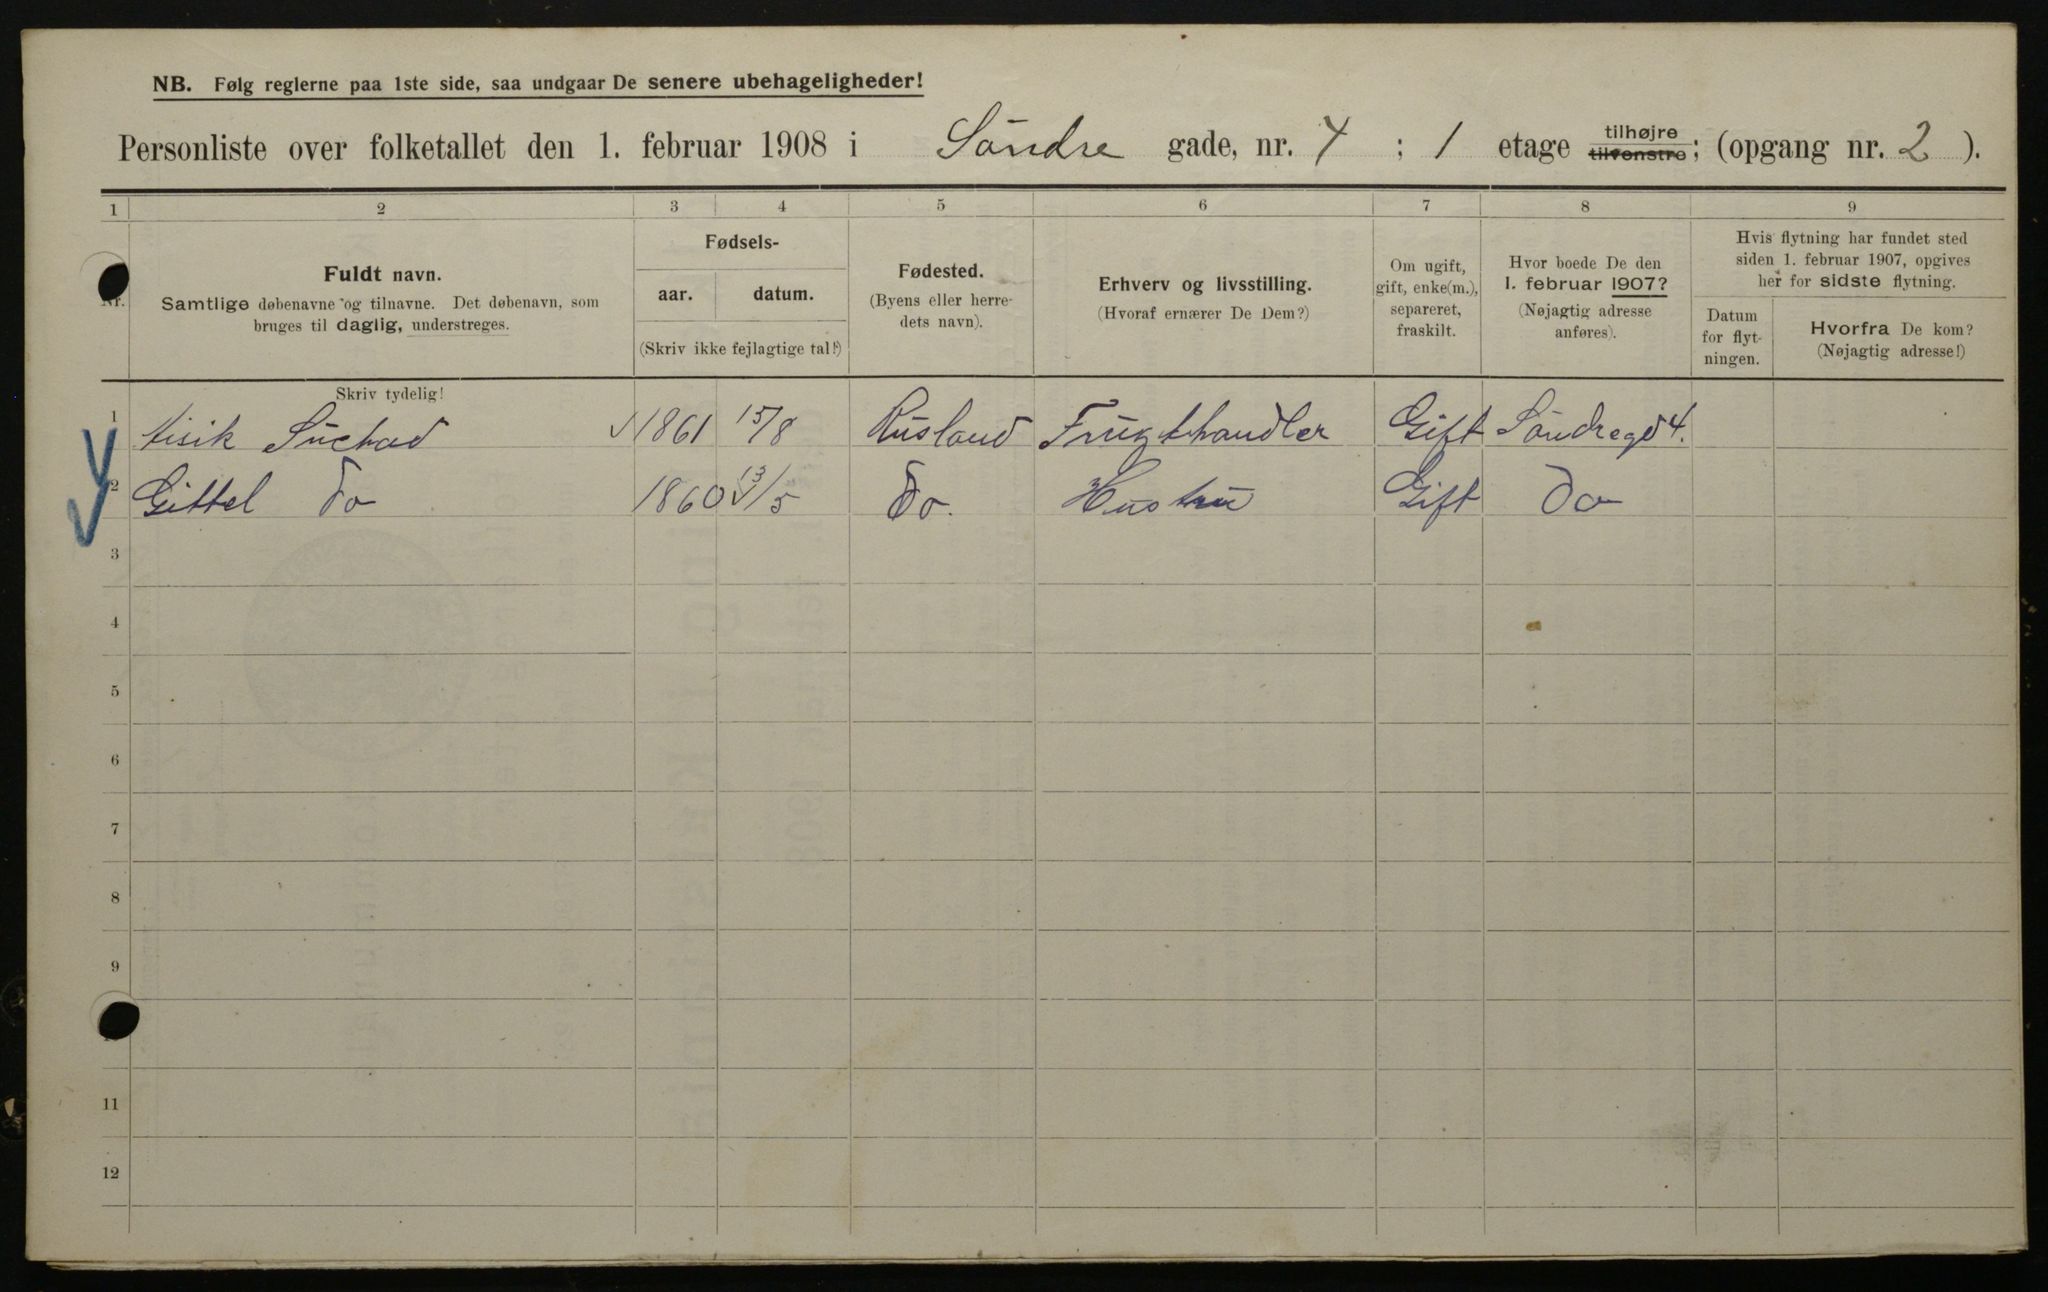 NB. Følg reglerne paa 1ste side, saa undgaar De senere ubehageligheder!
Personliste over folketallet den 1. februar 1908 i Söndre gade, nr. 4 ; 1 etage tilhøjre tilvenstre; (opgang nr. 2 ).
1 2 3 4 5 6 7 8 9
Nr.
Fuldt navn.
Samtlige døbenavne og tilnavne. Det døbenavn, som
bruges til daglig, understreges.
Fødsels-
aar. datum.
(Skriv ikke fejlagtige tal!)
Fødested.
(Byens eller herre-
dets navn).
Erhverv og livsstilling.
(Hvoraf ernærer De Dem?)
Om ugift,
gift, enke(m.),
separeret,
fraskilt.
Hvor boede De den
1. februar 1907?
(Nøjagtig adresse
anføres).
Hvis flytning har fundet sted
siden 1. februar 1907, opgives
her for sidste flytning.
Datum
for flyt-
ningen.
Hvorfra De kom?
(Nøjagtig adresse!)
Skriv tydelig!
1 Aisik Suchad 1861 15/8 Rusland Frugthandler Gift Söndregd 4.
2 Gittel do 1860 13/5 do. Hustru Gift do
3
4
5
6
7
8
9
11
12